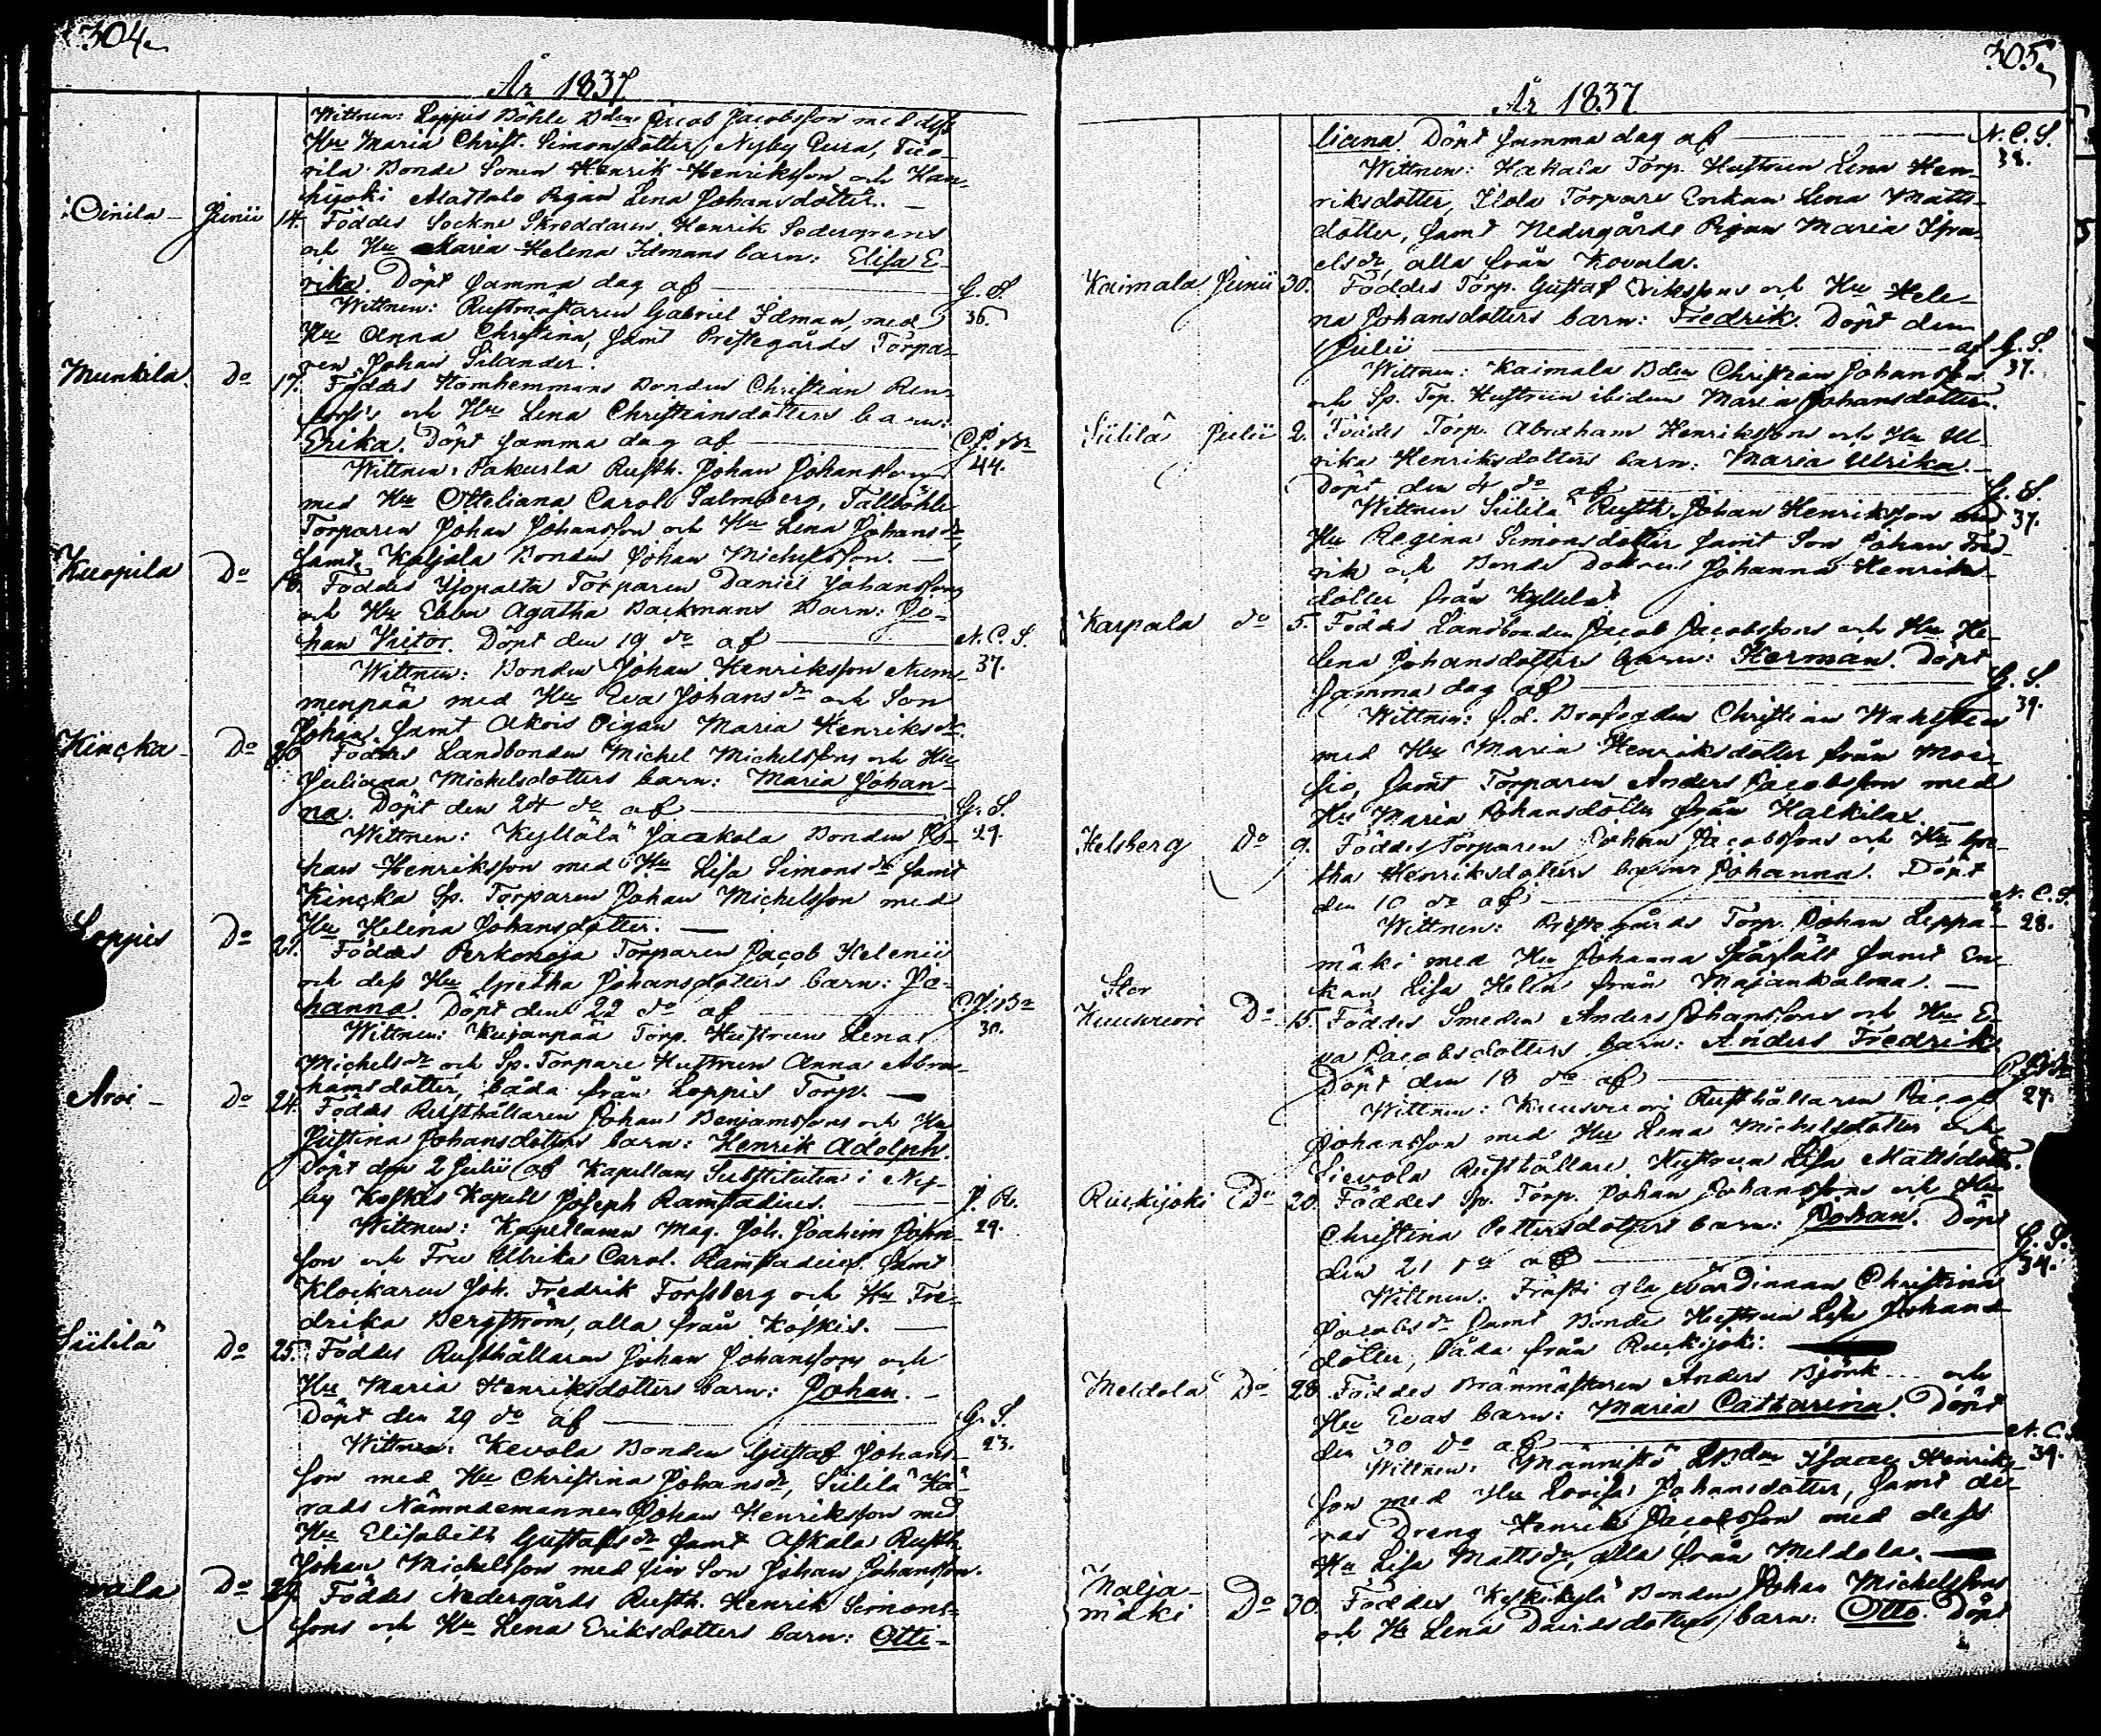 304.
År 1837
Wittnen: Loppis Böhle Bden Jacob Jacobsson med dess
Hu Maria Christ. Simonsdotter, Nyby Tuo-
rila Bonde Sonen Henrik Henriksson och
Mattala Pigan Lena Johansdotter. —
Oinila — Junii 14. Föddes Sockne Skreddaren Henrik Sedergrens
och Hu Maria Helena Idmans barn: Elisa E-
rika. Döpt samma dag af — G. S.
Wittnen: Rustmästaren Gabriel Idman, med 36.
Hu Anna Christina, samt Prestegårds Torpa-
ren Johan Silander.
Munkila Do 17. Föddes Bonden Christian
och Hu Lena Christiansdotters barn:
Erika. Döpt samma dag af —
Wittnen: Pakurla Rusth. Johan Johansson 44.
med Hu Otteliana Carol. Salmberg, Tallböhle
Torparen Johan Johansson och Hu Lena Johansdr
samt Kaljala Bonden Johan Michelsson. —
Kuopila Do 18. Föddes Torparen Daniel Johanssons
och Hu Ebba Agatha Backmans Barn: Jo-
han Victor. Döpt den 19 do af — N. C. S.
Wittnen: Bonden Johan Henriksson Num- 37.
menpää med Hu Eva Johansdr och Son
Johan samt Pigan Maria Henriksdr.
Do 20 Föddes Landbonden Michel Michelssons och Hu
Juliana Michelsdotters barn: Maria Johan-
na. Döpt den 24 do af — G. S.
Wittnen: Bonden Jo- 29.
han Henriksson med Hu Lisa Simonsdr samt
Sp. Torparen Johan Michelsson med
Hu Helena Johansdotter. —
Loppis Do 21. Föddes Perkonoja Torparen Jacob Helenii
och dess Hu Gretha Johansdotters barn: Jo-
hanna. Döpt den 22 do af —
Wittnen: Kujanpää Torp. Hustrun Lena 30.
Michelsdr och Sp. Torpare Hustrun Anna Abra-
hamsdotter, båda från Loppis Torp. —
Do 24. Föddes Rusthållaren Johan Benjamssons och Hu
Justina Johansdotters barn: Henrik Adolph.
Döpt den 2 Julii af Kapellans Substituten i Ny-
by Koskis Kapell Joseph Ramstadius. — J. R.
Wittnen: Kapellanen Mag. Joh. Joachim John- 29.
son och Fru Ulrika Carol. Ramstadius samt
Klockaren Joh. Fredrik Forssberg och Hu Fre-
drika Bergström, alla från Koskis. —
Siilila Do 25. Föddes Rusthållaren Johan Johanssons och
Hu Maria Henriksdotters barn: Johan. —
Döpt den 29 do af — G. S.
Wittnen: Kevola Bonden Gustaf Johans- 23.
son med Hu Christina Johansdr, Siilila Hä-
rads Nämndemannen Johan Henriksson med
Hu Elisabeth Gustafsdr samt Askala Rusth.
Johan Michelsson med sin Son Johan Johansson.
Do 29. Föddes Nedergårds Rusth. Henrik Simons-
sons och Hu Lena Eriksdotters barn: Otti-
305.
År 1837
liana. Döpt samma dag af — N. C. S.
Wittnen: Hakala Torp. Hustrun Lena Hen- 38.
riksdotter, Ilola Torpare Enkan Lena Matts-
dotter, samt Nedergårds Pigan Maria Isra-
elsdr, alla från Kovala.
Kaimala Junii 30. Föddes Torp. Gustaf Erikssons och Hu Hele-
na Johansdotters barn: Fredrik. Döpt den
Julii — af G. S.
Wittnen: Kaimala Bden Christian Johansson 37.
och Sp. Torp. Hustrun ibidem Maria Johansdotter.
Siilila Julii 2. Föddes Torp. Abraham Henrikssons och Hu Ul-
rika Henriksdotters barn: Maria Ulrika. —
Döpt den 4 do af — G. S.
Wittnen Siilila Rusth. Johan Henriksson med 37.
Hu Regina Simonsdotter samt Son Johan Fred-
rik och Bonde Dottren Johanna Henriks-
dotter från
Karpala do 5. Föddes Landbonden Jacob Jacobssons och Hu He-
lena Johansdotters barn: Herman. Döpt
samma dag af — G. S.
Wittnen: Christian Wahlsten 39.
med Hu Maria Henriksdotter från
samt Torparen Anders Jacobsson med
Hu Maria Johansdotter från —
Helsberg Do 9. Föddes Torparen Johan Jacobssons och Hu Gre-
tha Henriksdotters barn Johanna. Döpt
den 10 do af — N. C. S.
Wittnen: Prestegårds Torp. Johan Leppa- 28.
mäki med Hu Johanna samt En-
kan Lisa Helin från Majankalma. —
Stor
Kuusvuori Do 15. Föddes Smeden Anders Johanssons och Hu E-
va Jacobsdotters barn: Anders Fredrik
Döpt den 18 do af —
Wittnen: Kuusvuori Rusthållaren Jacob 27.
Johansson med Hu Lena Michelsdotter och
Sievola Rusthållare Hustrun Lisa Mattsdotter.
Ruskijoki Do 20. Föddes Sp. Torp. Johan Johanssons och Hu
Christina Pettersdotters barn: Johan. Döpt
den 21 do af — G. S.
Wittnen: Christina 34.
Jacobsdr samt Bonde Hustrun Lisa Johans-
dotter, båda från Ruskijoki: —
Meldola Do 28 Föddes Brännmästaren Anders Björk och
Hu Evas barn: Maria Catharina. Döpt
den 30 do af — N. C.
Wittnen: Männistö Isaac Henriks- 39.
son med Hu Lovisa Johansdotter, samt de-
ras Dreng Henrik Jacobsson med dess
Hu Lisa Mattsdr, alla från Meldola. —
Nalja-
mäki Do 30. Föddes Keskikylä Bonden Johan Michelssons
och Hu Lena Davidsdotters barn: Otto. Döpt